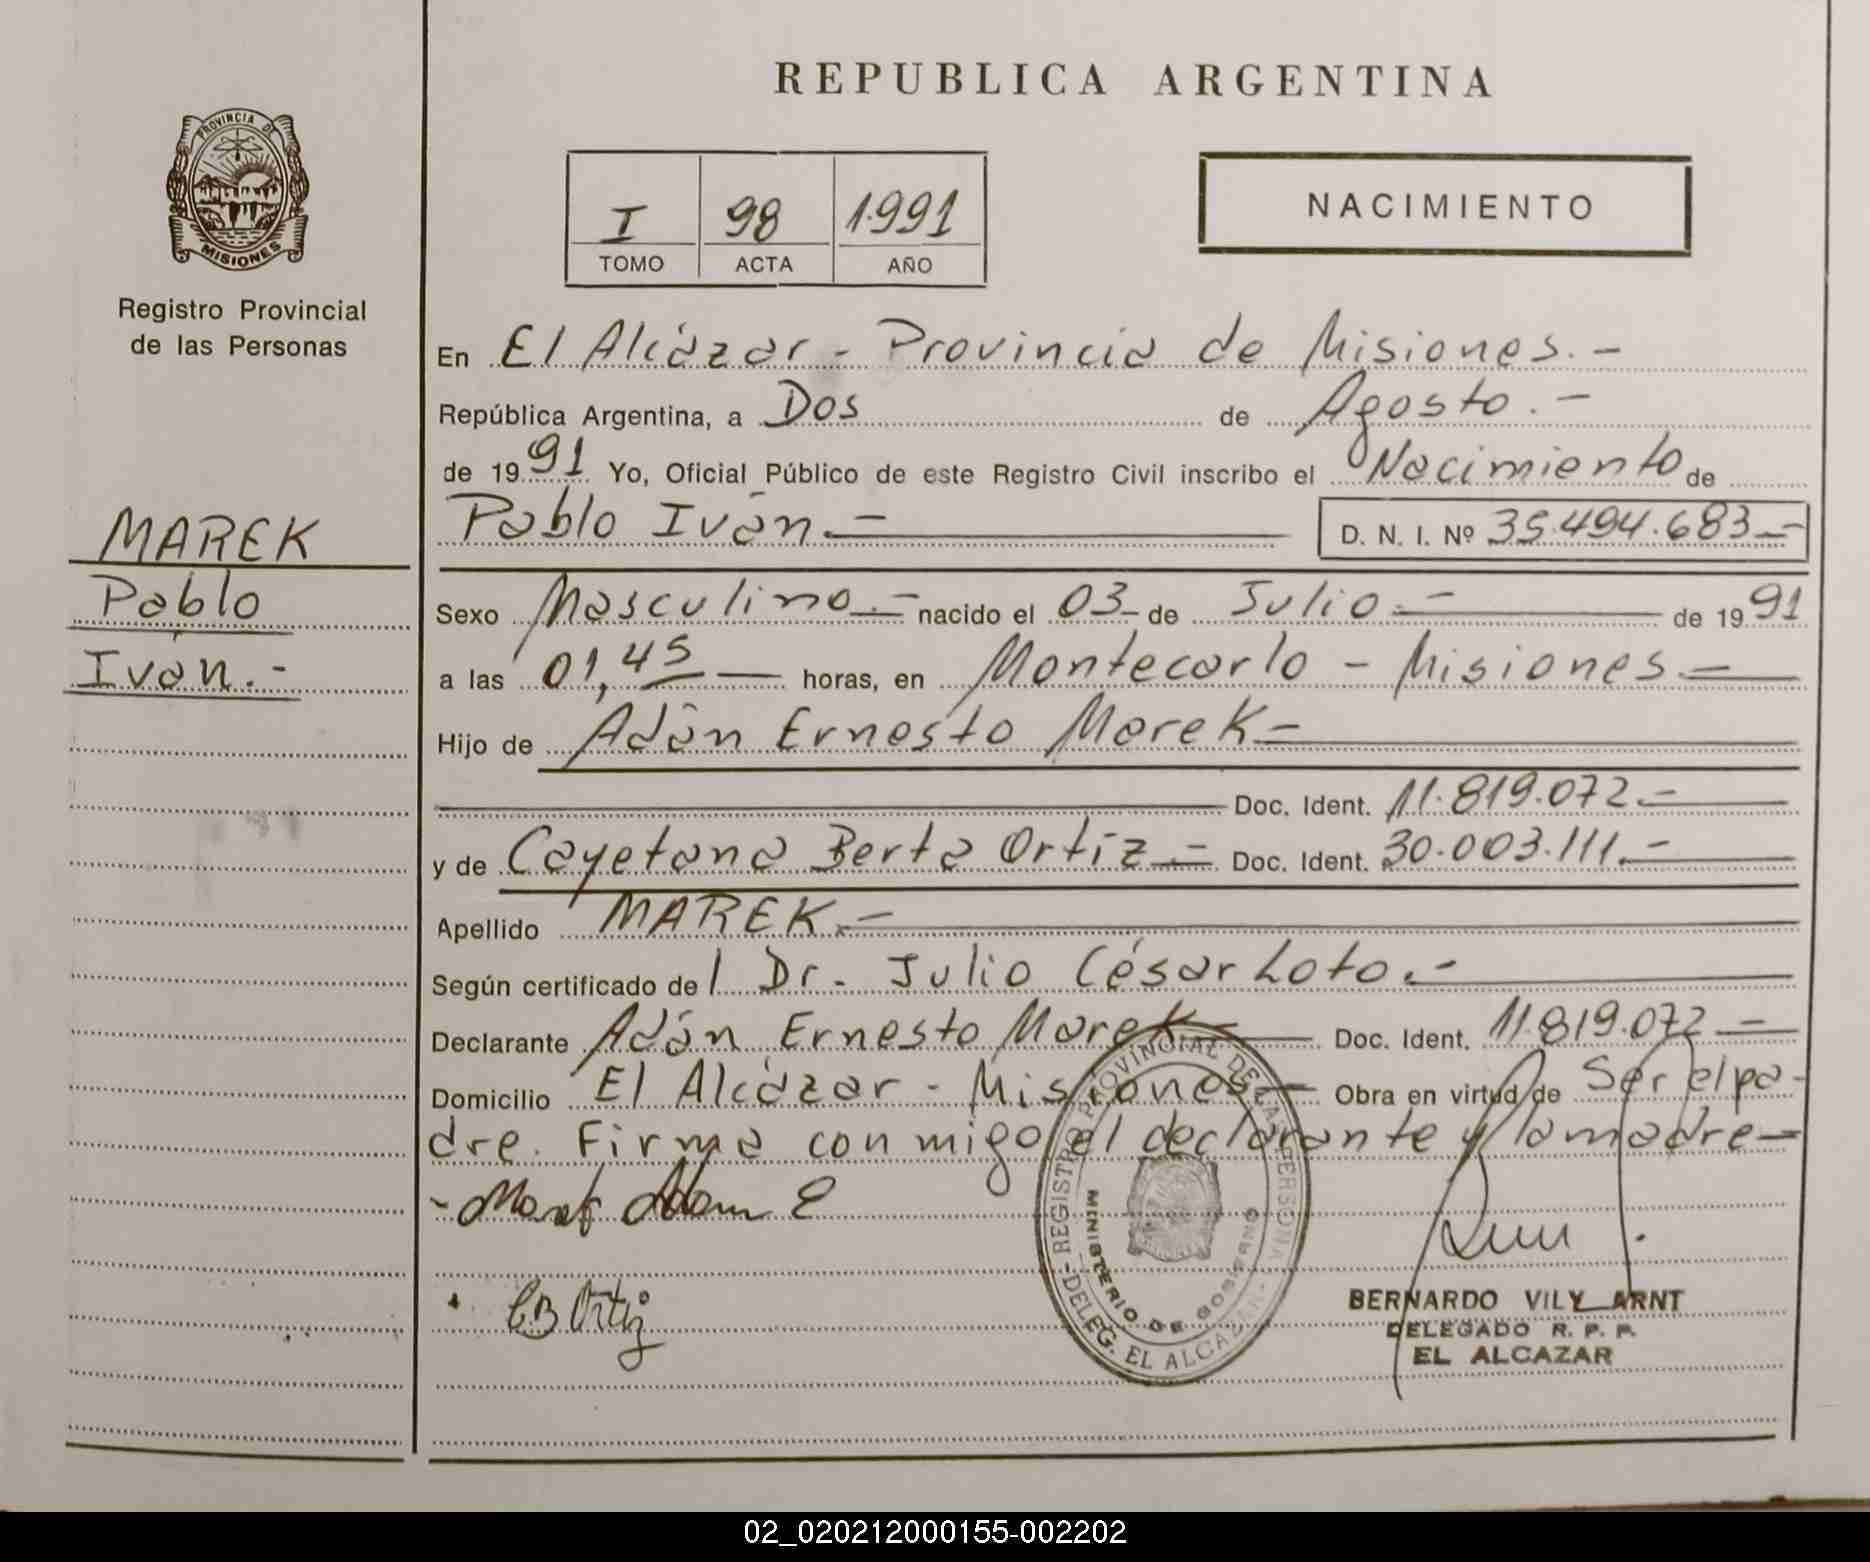 REPUBLICA ARGENTINA
PROVINCIA DE
MISIONES
Registro Provincial
de las Personas
I 98 1991
TOMO ACTA AÑO
NACIMIENTO
MAREK
Pablo
Iván.-
En El Alcázar - Provincia de Misiones.-
República Argentina, a Dos de Agosto.-
de 1991 Yo, Oficial Público de este Registro Civil inscribo el Nacimiento de
Pablo Iván.- D. N. I. Nº 35.494.683.-
Sexo Masculino.- nacido el 03 de Julio.- de 1991
a las 01,45 horas, en Montecarlo - Misiones.-
Hijo de Adán Ernesto Marek-
Doc. Ident. 11.819.072.-
y de Cayetana Berta Ortíz.- Doc. Ident. 30.003.111.-
Apellido MAREK.-
Según certificado del Dr. Julio César Loto.-
Declarante Adán Ernesto Marek- Doc. Ident. 11.819.072-
Domicilio El Alcázar - Misiones.- Obra en virtud de Ser el pa-
dre. Firma conmigo el declarante y la madre-
- Marek Adam E
CB Ortiz
REGISTRO PROVINCIAL DE LAS PERSONAS
MINISTERIO DE GOBIERNO
-DELEG. EL ALCAZAR-
BERNARDO VILY ARNT
DELEGADO R. P. P.
EL ALCAZAR
02_020212000155-002202